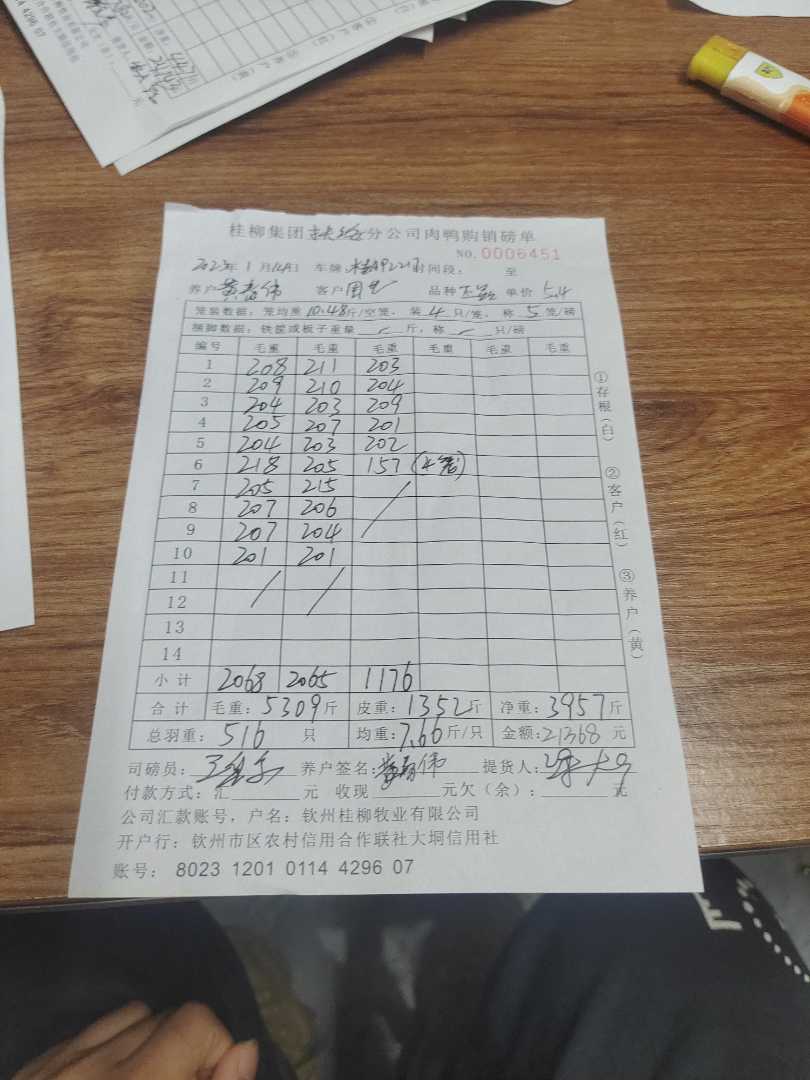 桂柳集团扶绥分公司肉鸭购销磅单
NO. 0006451
2023年1月14日 车牌: 时间段: 至
养户 黄 伟 客户 周 品种 单价 5.4
笼装数据: 笼均重 10.48斤/空笼, 装 4 只/笼, 称 5 笼/磅
捆脚数据: 铁筐或板子重量 / 斤, 称 / 只/磅
编号 毛重 毛重 毛重 毛重 毛重 毛重
1 208 211 203
2 209 210 204
3 204 203 209
4 205 207 201
5 204 203 202
6 218 205 157 (4笼)
7 205 215 /
8 207 206
9 207 204
10 201 201
11 / /
12
13
14
小计 2068 2065 1176
合计 毛重: 5309斤 皮重: 1352斤 净重: 3957斤
总羽重: 516 只 均重: 7.66斤/只 金额: 21368 元
司磅员: 养户签名: 伟 提货人:
付款方式: 汇 元 收现 元欠(余): 元
公司汇款账号, 户名: 钦州桂柳牧业有限公司
开户行: 钦州市区农村信用合作联社大垌信用社
账号: 8023 1201 0114 4296 07
①存根(白)
②客户(红)
③养户(黄)
4 4296 07